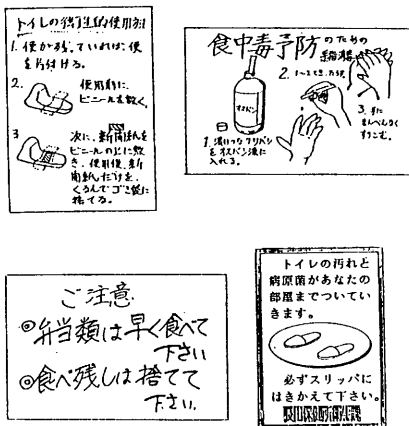 トイレの衛生的使用法
1. 便が残っていれば、便
を片付ける。
2. 使用前に、
ビニールを敷く。
3 次に、新聞紙を
ビニールの上に敷
き、使用後、新
聞紙だけを、
くるんでゴミ袋に
捨てる。
食中毒予防のための
2.
オスバン
1.
をオスバン液に
入れる。
3. 手に
まんべんなく
すりこむ。
ご注意
◎弁当類は早く食べて
下さい
◎食べ残しは捨てて
下さい.
トイレの汚れと
病原菌があなたの
部屋までついてい
きます。
必ずスリッパに
はきかえて下さい。